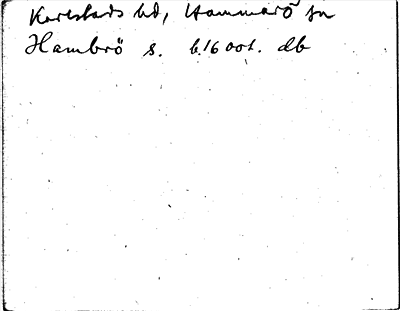 Karlstads hd, Hammarö sn
Hambrö s. b. 1600t. db